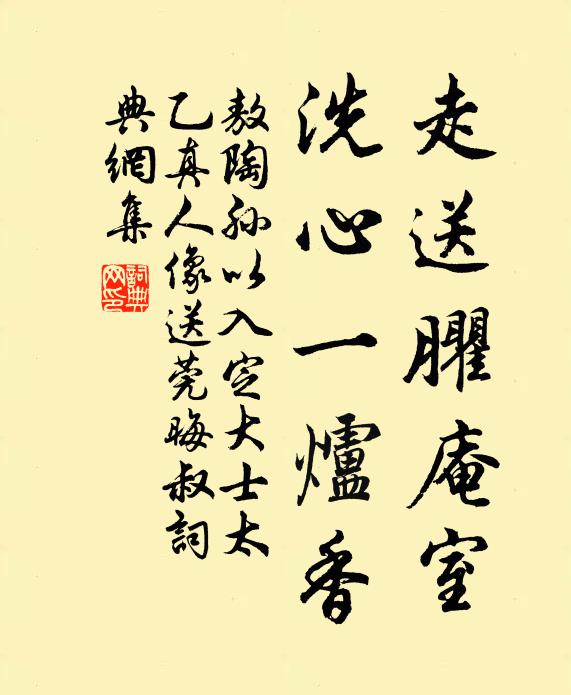 走送臞庵室
洗心一爐香
敖陶孙以入定大士太
乙真人像送莞晦叔詞
典網集
詞典网印